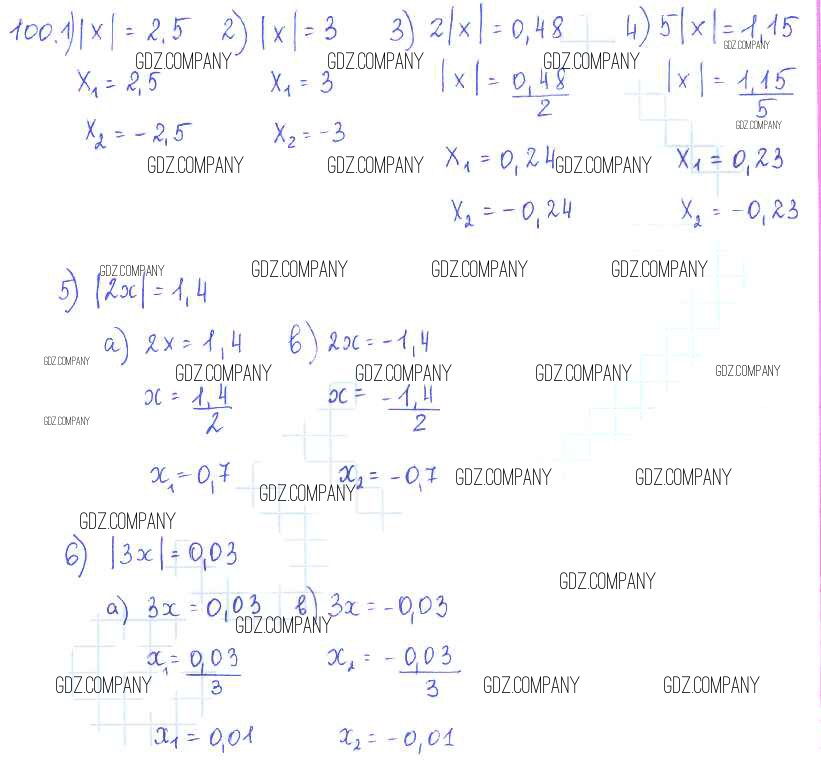 100.1) |x| = 2,5 2) |x| = 3 3) 2|x| = 0,48 4) 5|x| = 1,15
GDZ.COMPANY GDZ.COMPANY GDZ.COMPANY GDZ.COMPANY
x₁ = 2,5 x₁ = 3 |x| = 0,48/2 |x| = 1,15/5
x₂ = -2,5 x₂ = -3 GDZ.COMPANY
GDZ.COMPANY GDZ.COMPANY x₁ = 0,24 GDZ.COMPANY x₁ = 0,23
x₂ = -0,24 x₂ = -0,23
GDZ.COMPANY GDZ.COMPANY GDZ.COMPANY GDZ.COMPANY
5) |2x| = 1,4
а) 2x = 1,4 в) 2x = -1,4
GDZ.COMPANY GDZ.COMPANY GDZ.COMPANY GDZ.COMPANY GDZ.COMPANY
x = 1,4/2 x = -1,4/2
GDZ.COMPANY
x₁ = 0,7 x₂ = -0,7 GDZ.COMPANY GDZ.COMPANY
GDZ.COMPANY
GDZ.COMPANY
6) |3x| = 0,03
GDZ.COMPANY
а) 3x = 0,03 в) 3x = -0,03
GDZ.COMPANY
x₁ = 0,03/3 x₂ = -0,03/3
GDZ.COMPANY GDZ.COMPANY GDZ.COMPANY
x₁ = 0,01 x₂ = -0,01